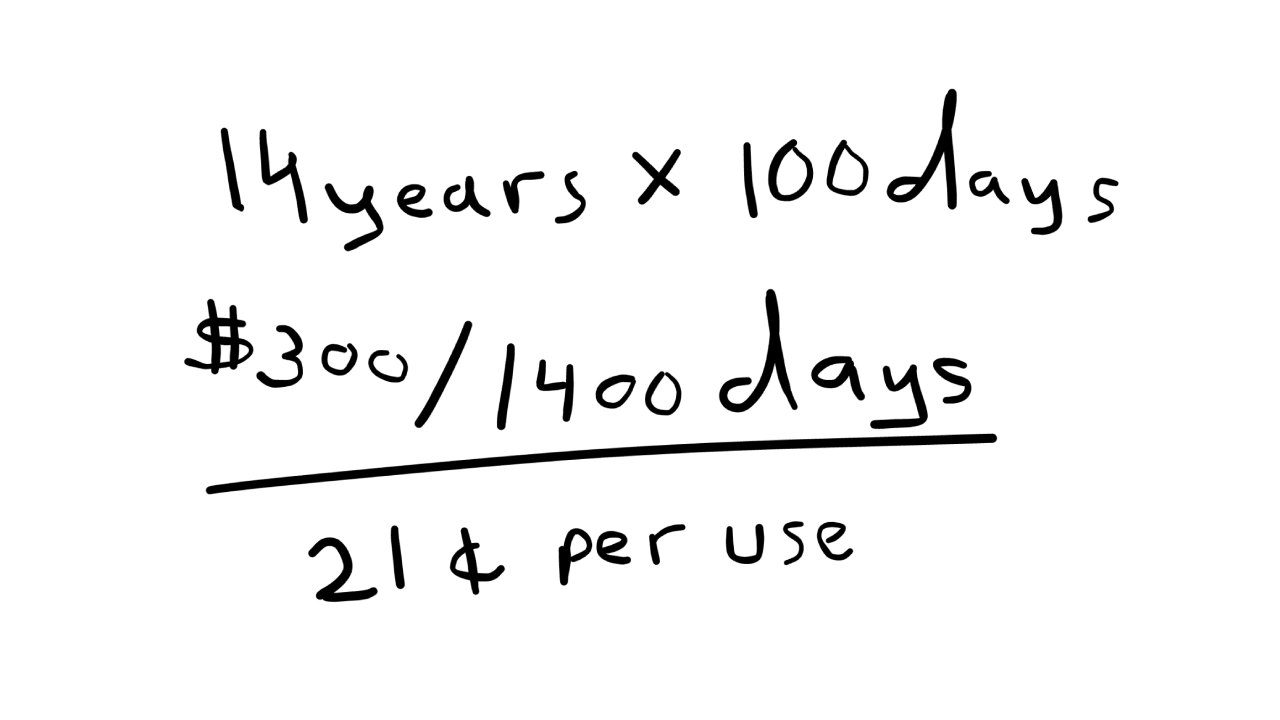 14 years x 100 days
$300/1400 days
21¢ per use